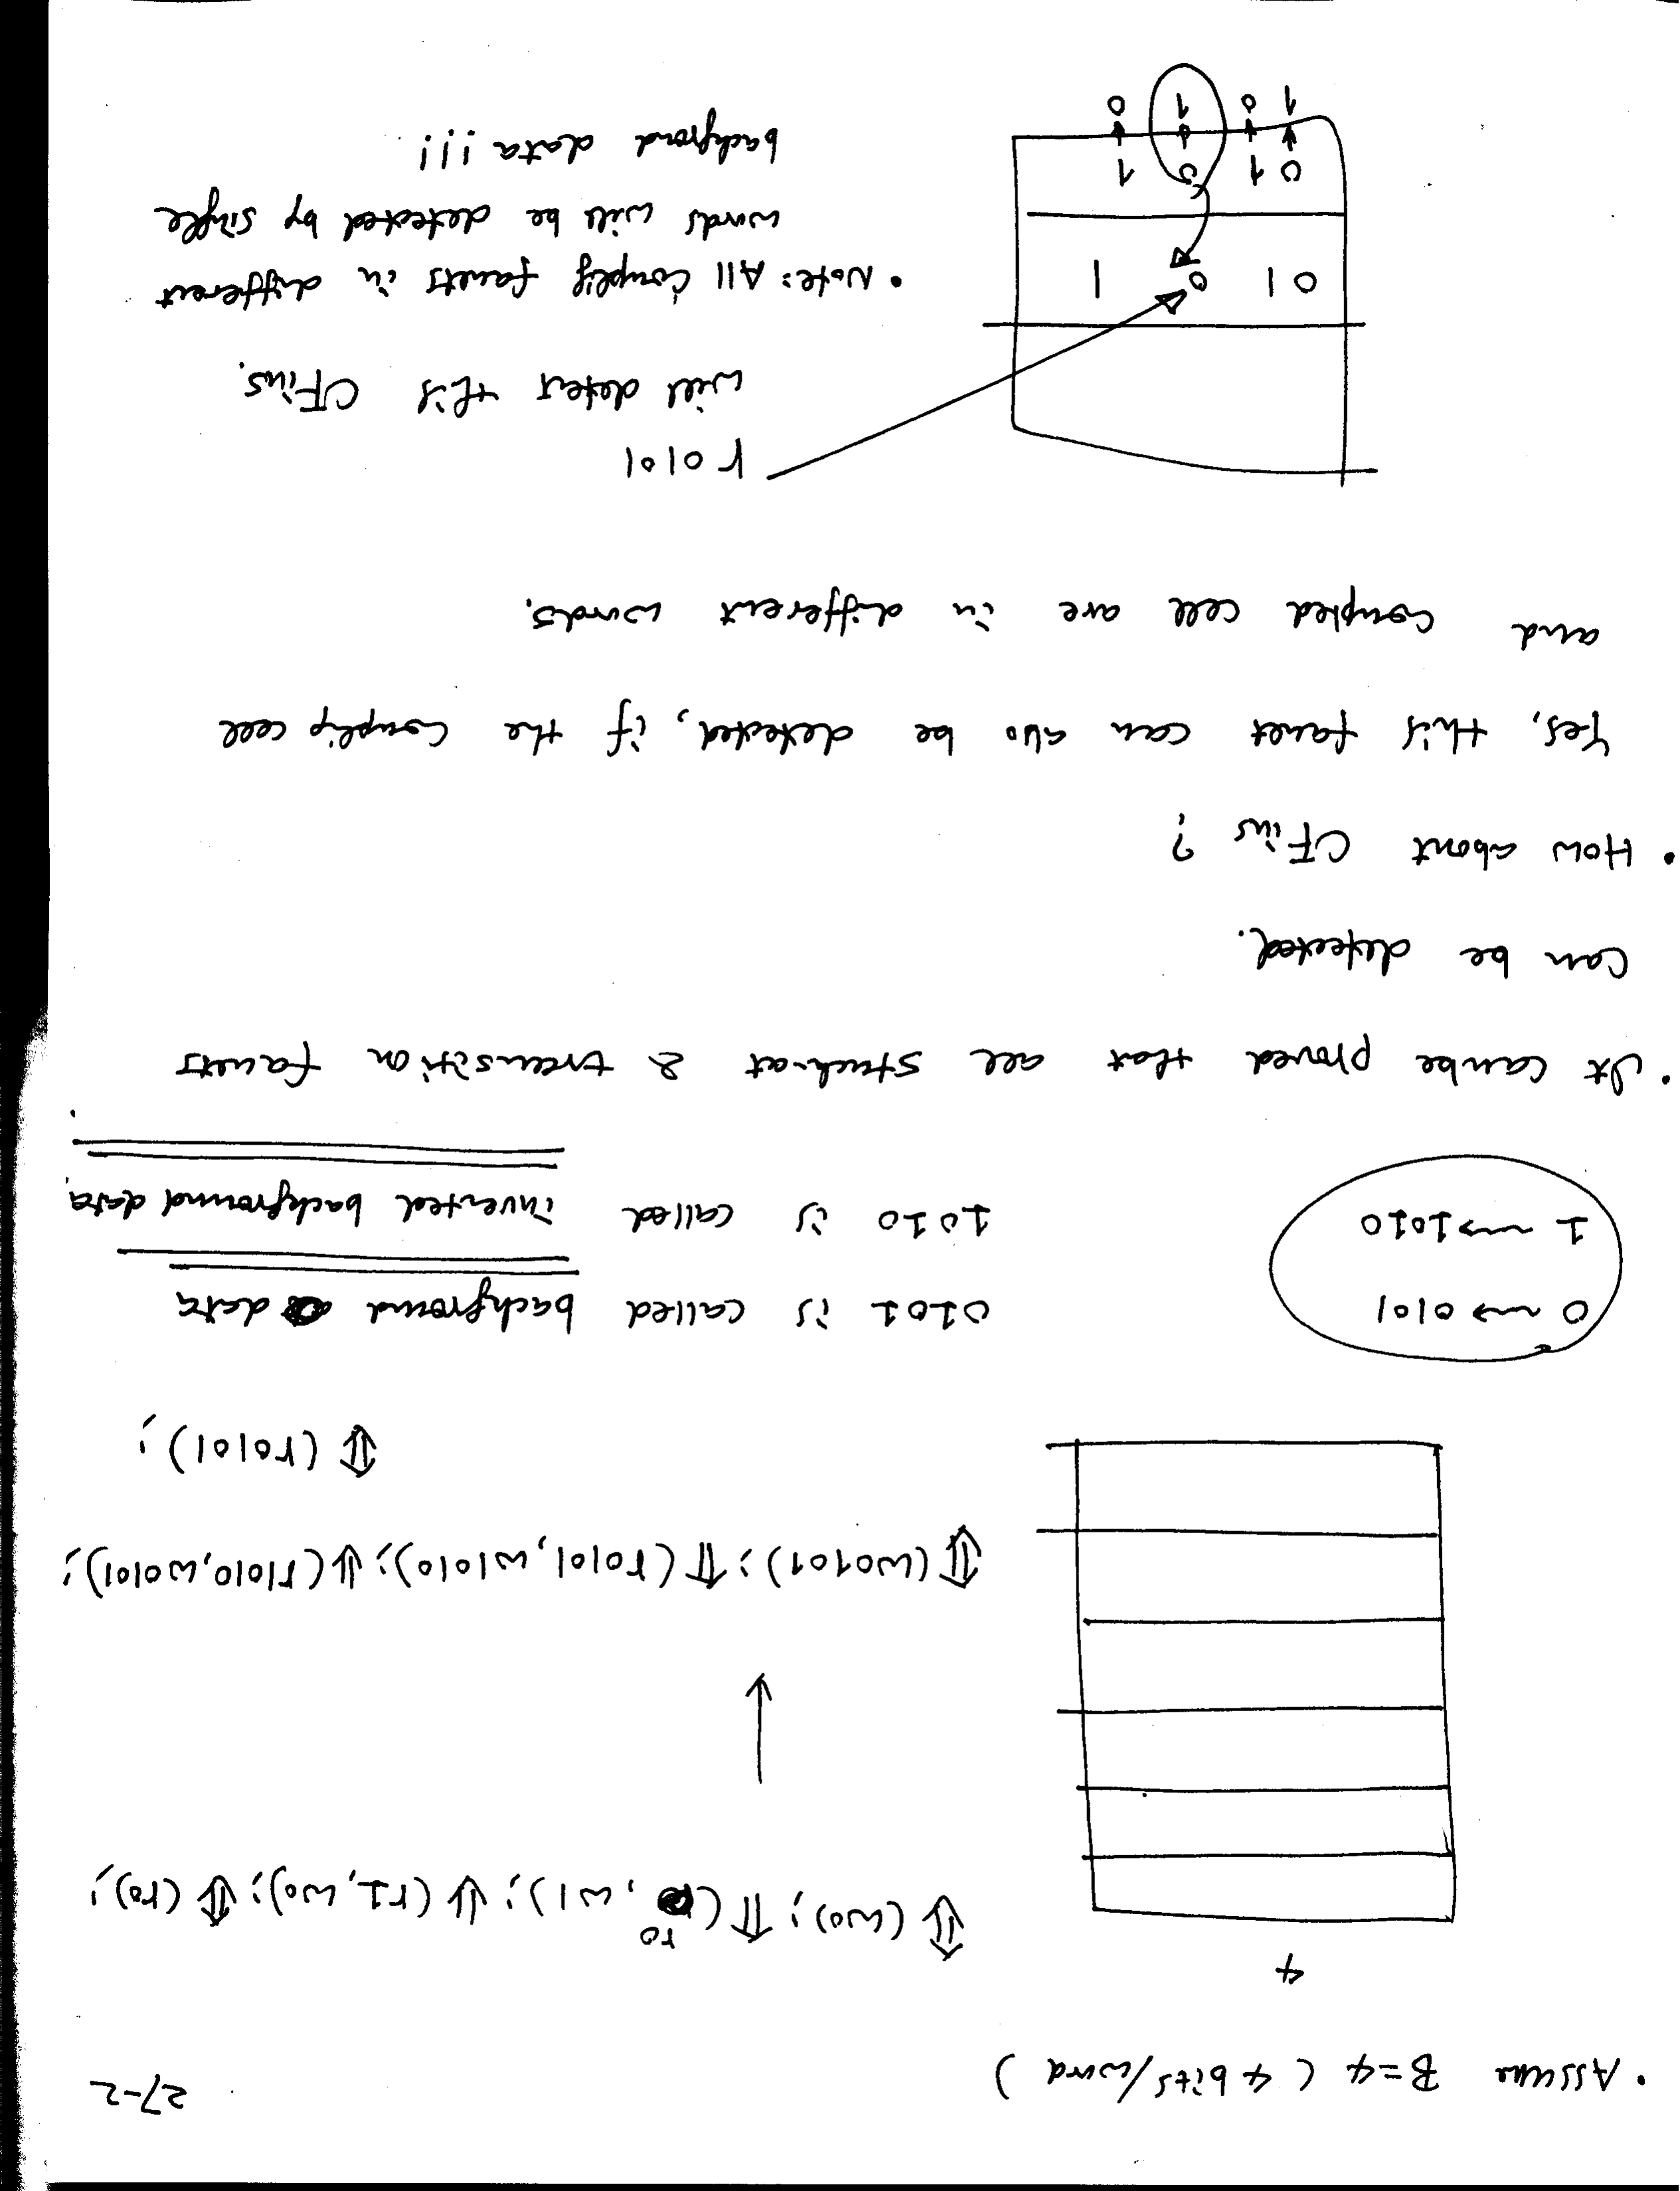 27-2
• Assume B=4 (4 bits/word)
4
⇕(w0); ⇑(r0, w1); ⇓(r1, w0); ⇕(r0);
↓
⇕(w0101); ⇑(r0101, w1010); ⇓(r1010, w0101);
⇕(r0101);
0 ⇝ 0101
1 ⇝ 1010
0101 is called background data
1010 is called inverted background data.
• It can be proved that all stuck-at & transition faults
can be detected.
• How about CFins ?
Yes, this fault can also be detected, if the couplig cell
and coupled cell are in different words.
r0101
will detect this CFins.
0 1 0 1
0 1 0 1
1 0 1 0
• Note: All couplig faults in different
words will be detected by single
backgrond data!!!